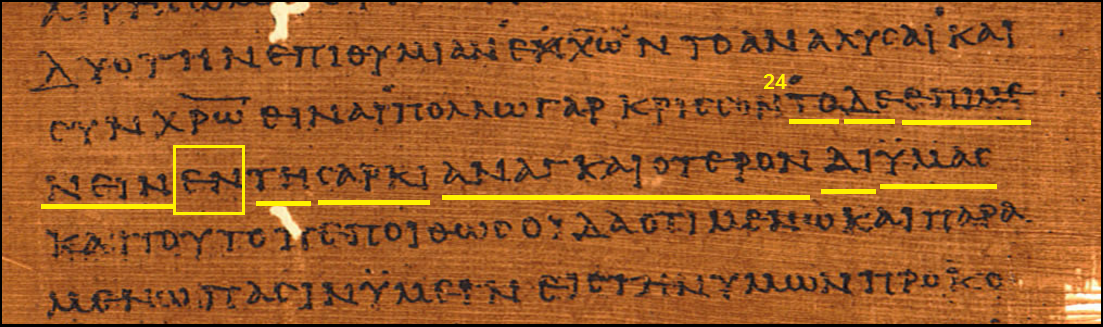 ΔΥΟ ΤΗΝ ΕΠΙΘΥΜΙΑΝ ΕΧΩΝ ΤΟ ΑΝΑΛΥϹΑΙ ΚΑΙ
ϹΥΝ ΧΡ̅Ω̅ ΕΙΝΑΙ ΠΟΛΛΩ ΓΑΡ ΚΡΙϹϹΟΝ 24 ΤΟ ΔΕ ΕΠΙΜΕ
ΝΕΙΝ ΕΝ ΤΗ ϹΑΡΚΙ ΑΝΑΓΚΑΙΟΤΕΡΟΝ ΔΙ ΫΜΑϹ
ΚΑΙ ΤΟΥΤΟ ΠΕΠΟΙΘΩϹ ΟΪΔΑ ΟΤΙ ΜΕΝΩ ΚΑΙ ΠΑΡΑ
ΜΕΝΩ ΠΑϹΙΝ ΫΜΕΙΝ ΕΙϹ ΤΗΝ ΫΜΩΝ ΠΡΟΚΟ